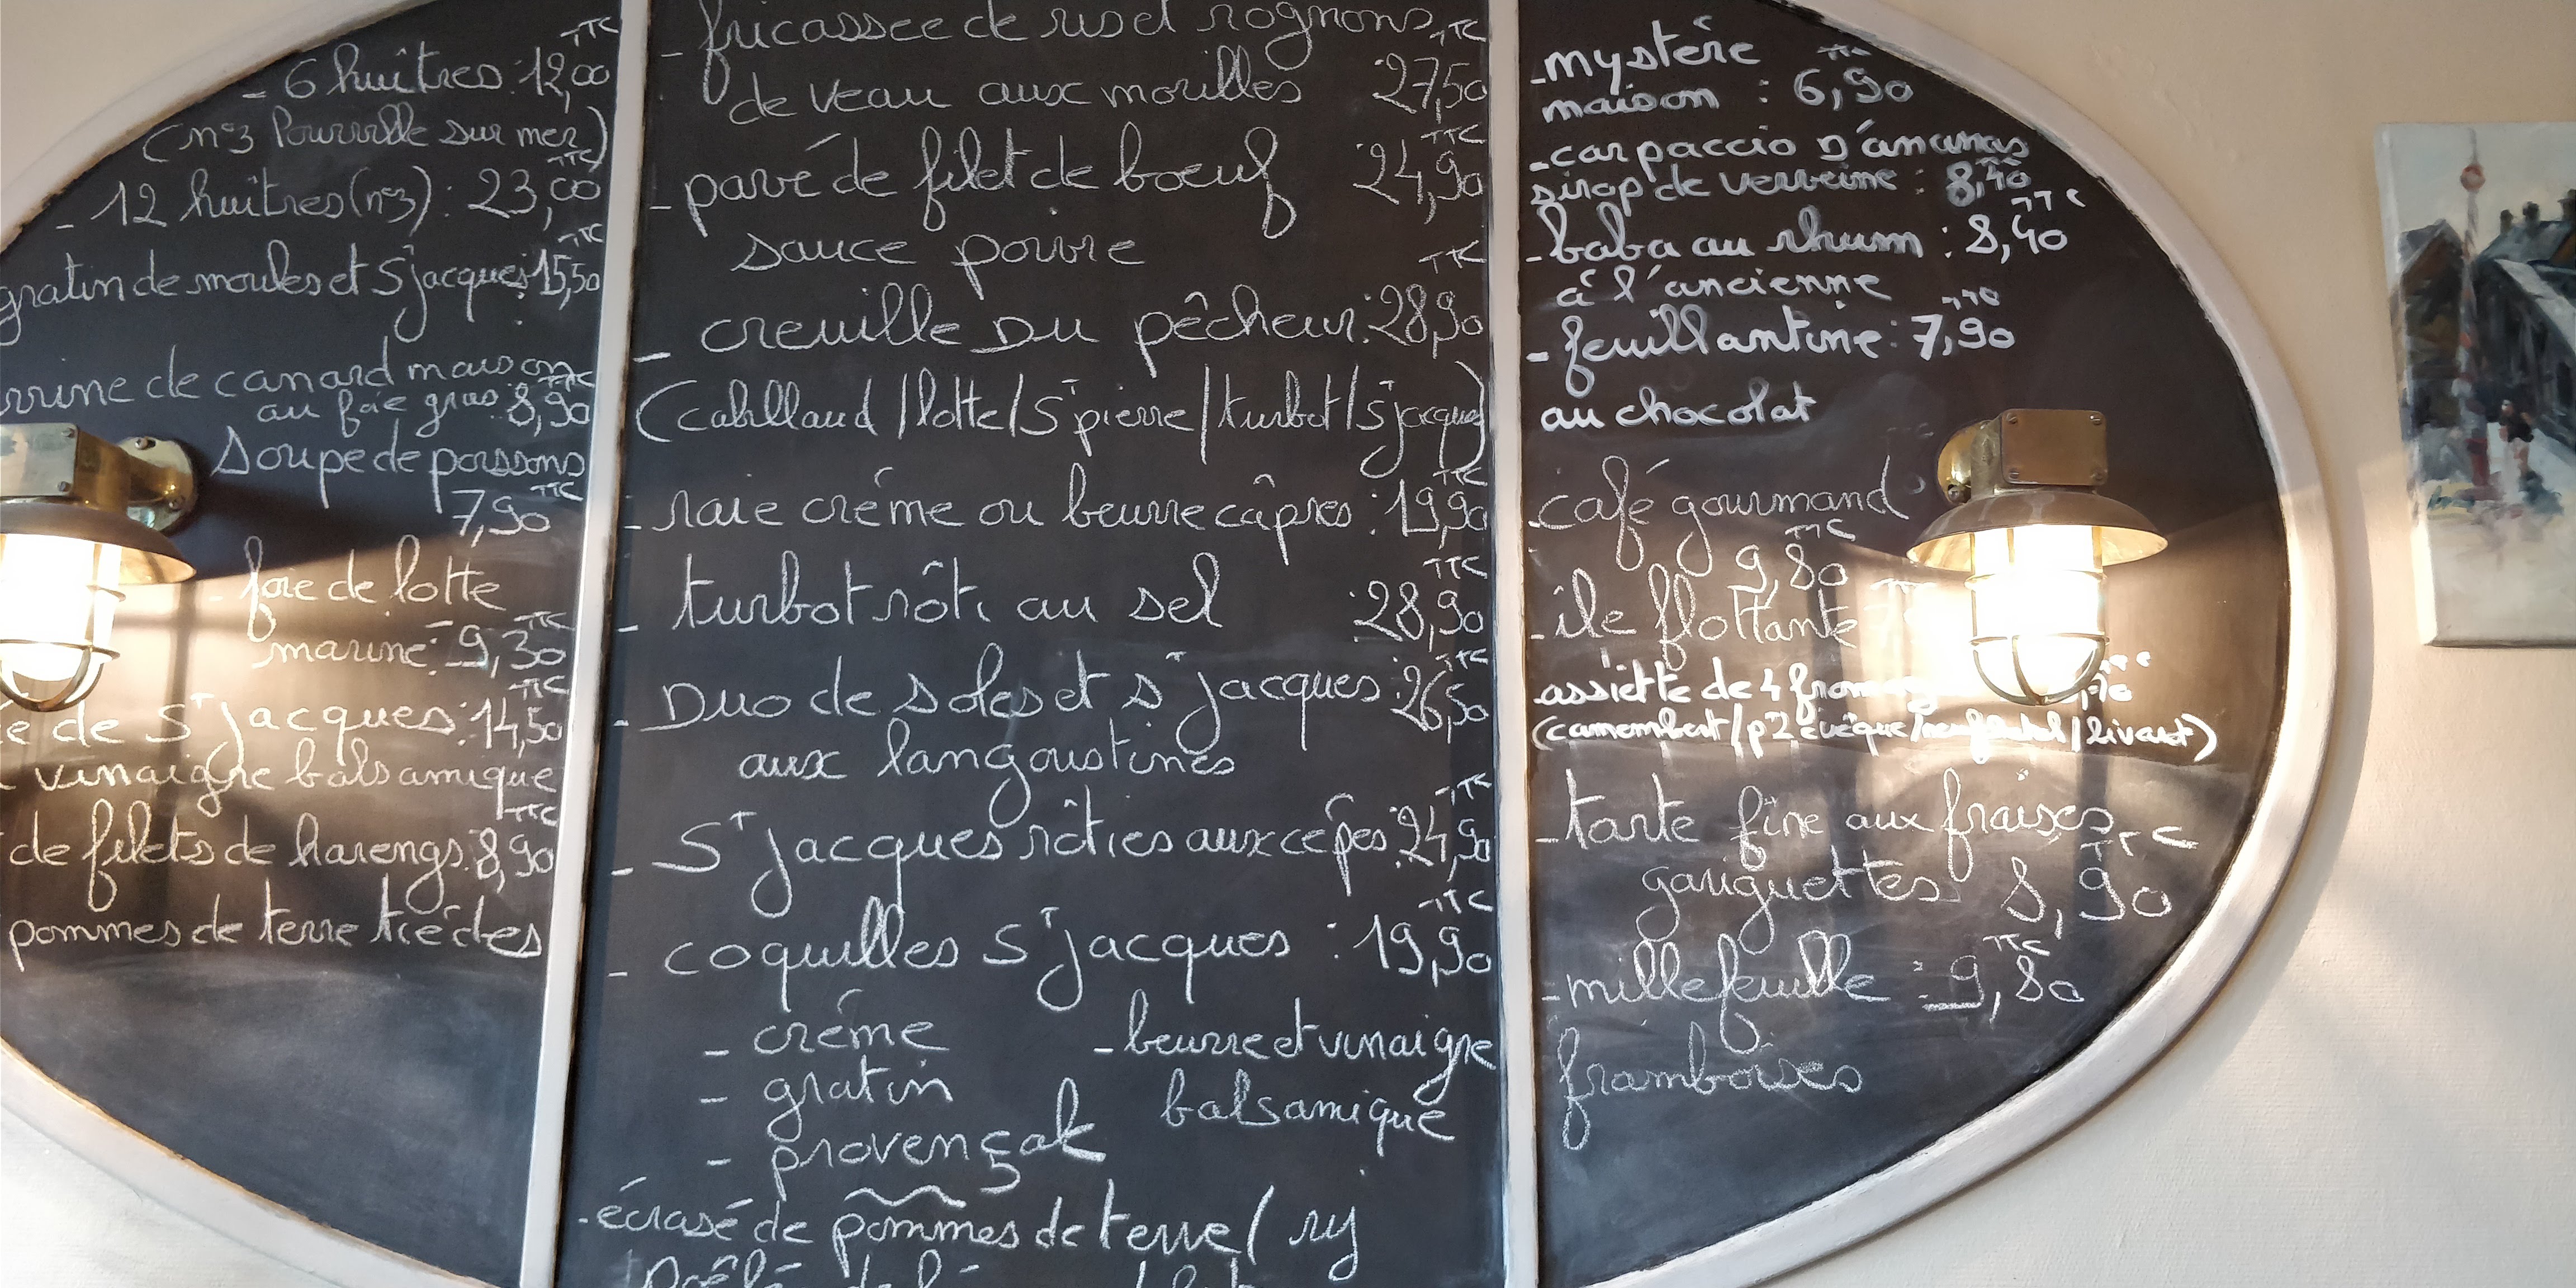 TTC
- 6 huîtres : 12,00
(n°3 Pourville sur mer)
TTC
- 12 huîtres (n°3) : 23,00
TTC
gratin de moules et St jacques : 15,50
rrine de canard maison
TTC
au foie gras : 8,90
soupe de poissons
TTC
7,90
- foie de lotte
TTC
mariné : 9,30
TTC
e de St jacques : 14,50
vinaigre balsamique
TTC
de filets de harengs : 8,90
pommes de terre tiédes
- fricassée de ris et rognons
TTC
de veau aux morilles : 27,50
TTC
- pavé de filet de boeuf : 24,90
sauce poivre
TTC
- creuille du pêcheur : 28,90
(cabillaud / lotte / St pierre / turbot / St jacques)
TTC
- raie créme ou beurre câpres : 19,90
TTC
- turbot rôti au sel : 28,90
TTC
- Duo de soles et st jacques : 26,50
aux langoustines
TTC
- St jacques rôties aux cépes : 24,90
TTC
- coquilles St jacques : 19,90
- créme - beurre et vinaigre
- gratin balsamique
- provençale
- écrasé de pommes de terre / riz
- mystére
TTC
maison : 6,90
- carpaccio d'ananas
TTC
sirop de verveine : 8,40
TTC
- baba au rhum : 8,40
à l'ancienne
TTC
- feuillantine : 7,90
au chocolat
- café gourmand
TTC
9,80
- île flottante TTC
TTC
- assiette de 4
(camembert / pt évêque / neufchatel / livarot)
- tarte fine aux fraises
TTC
gariguettes 8,90
TTC
- millefeuille : 9,80
framboises